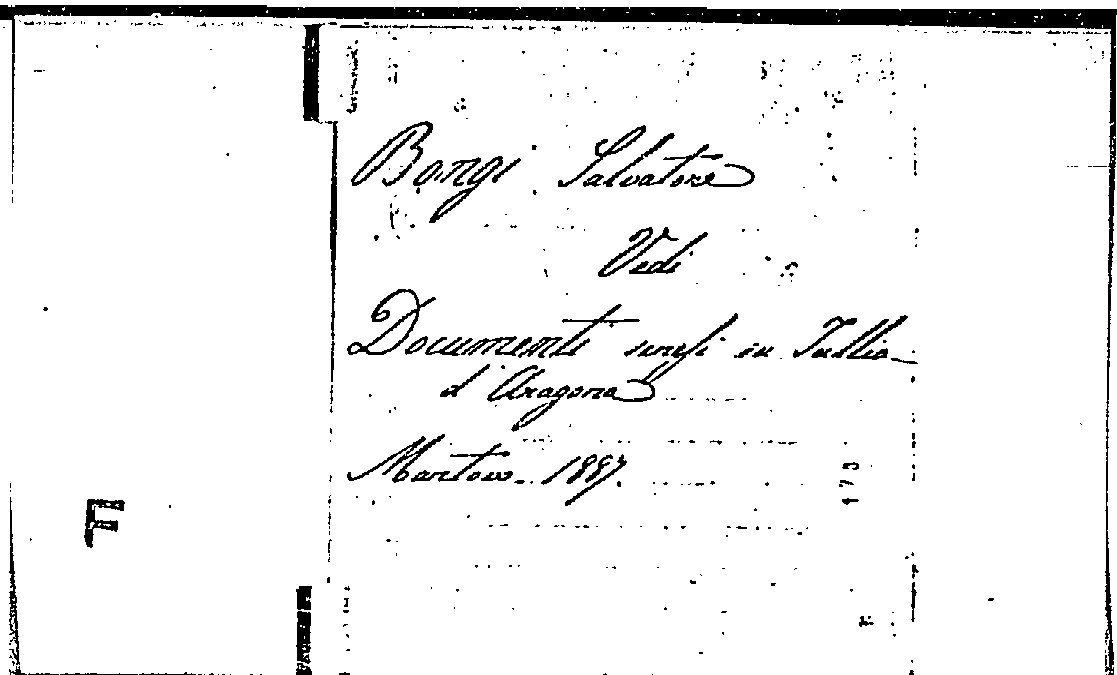 Bongi Salvatore
Vedi
Documenti su Tullia
d'Aragona
Mantova 1887.
173
F